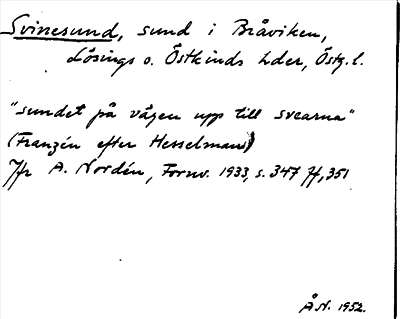 Svinesund, sund i Bråviken,
Lösings o. Östkinds hder, Östg. l.
"sundet på vägen upp till svearna"
(Franzén efter Hesselman)
Jfr A. Nordén, Fornv. 1933, s. 347 ff, 351
Å.N. 1952.